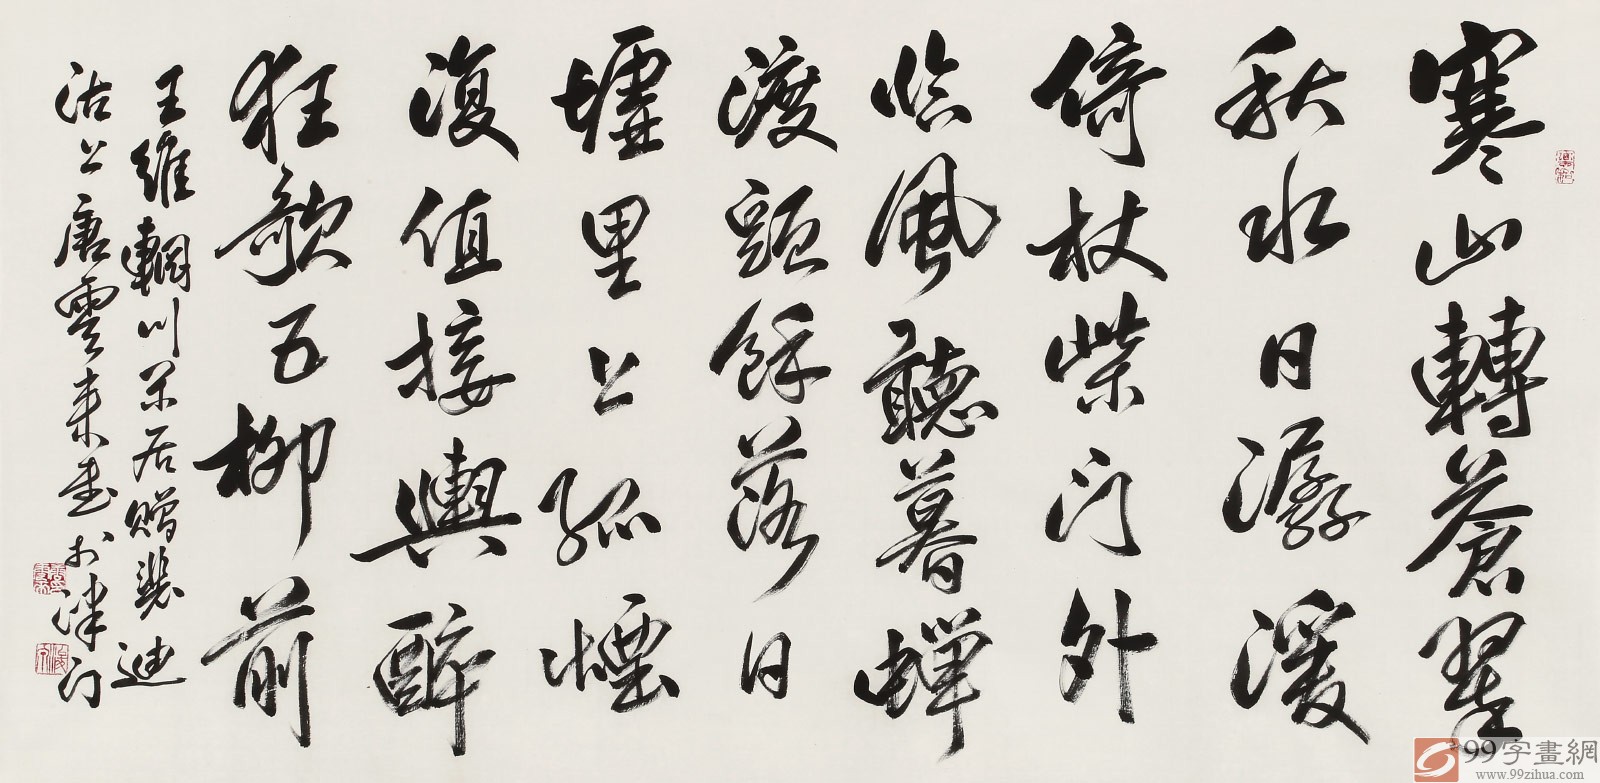 寒山轉蒼翠
秋水日潺湲
倚杖柴门外
临風聽暮蝉
渡頭餘落日
墟里上孤煙
復值接輿醉
狂歌五柳前
王維輞川闲居贈裴迪
沽上唐雲来书於津门
99字畫網
www.99zihua.com